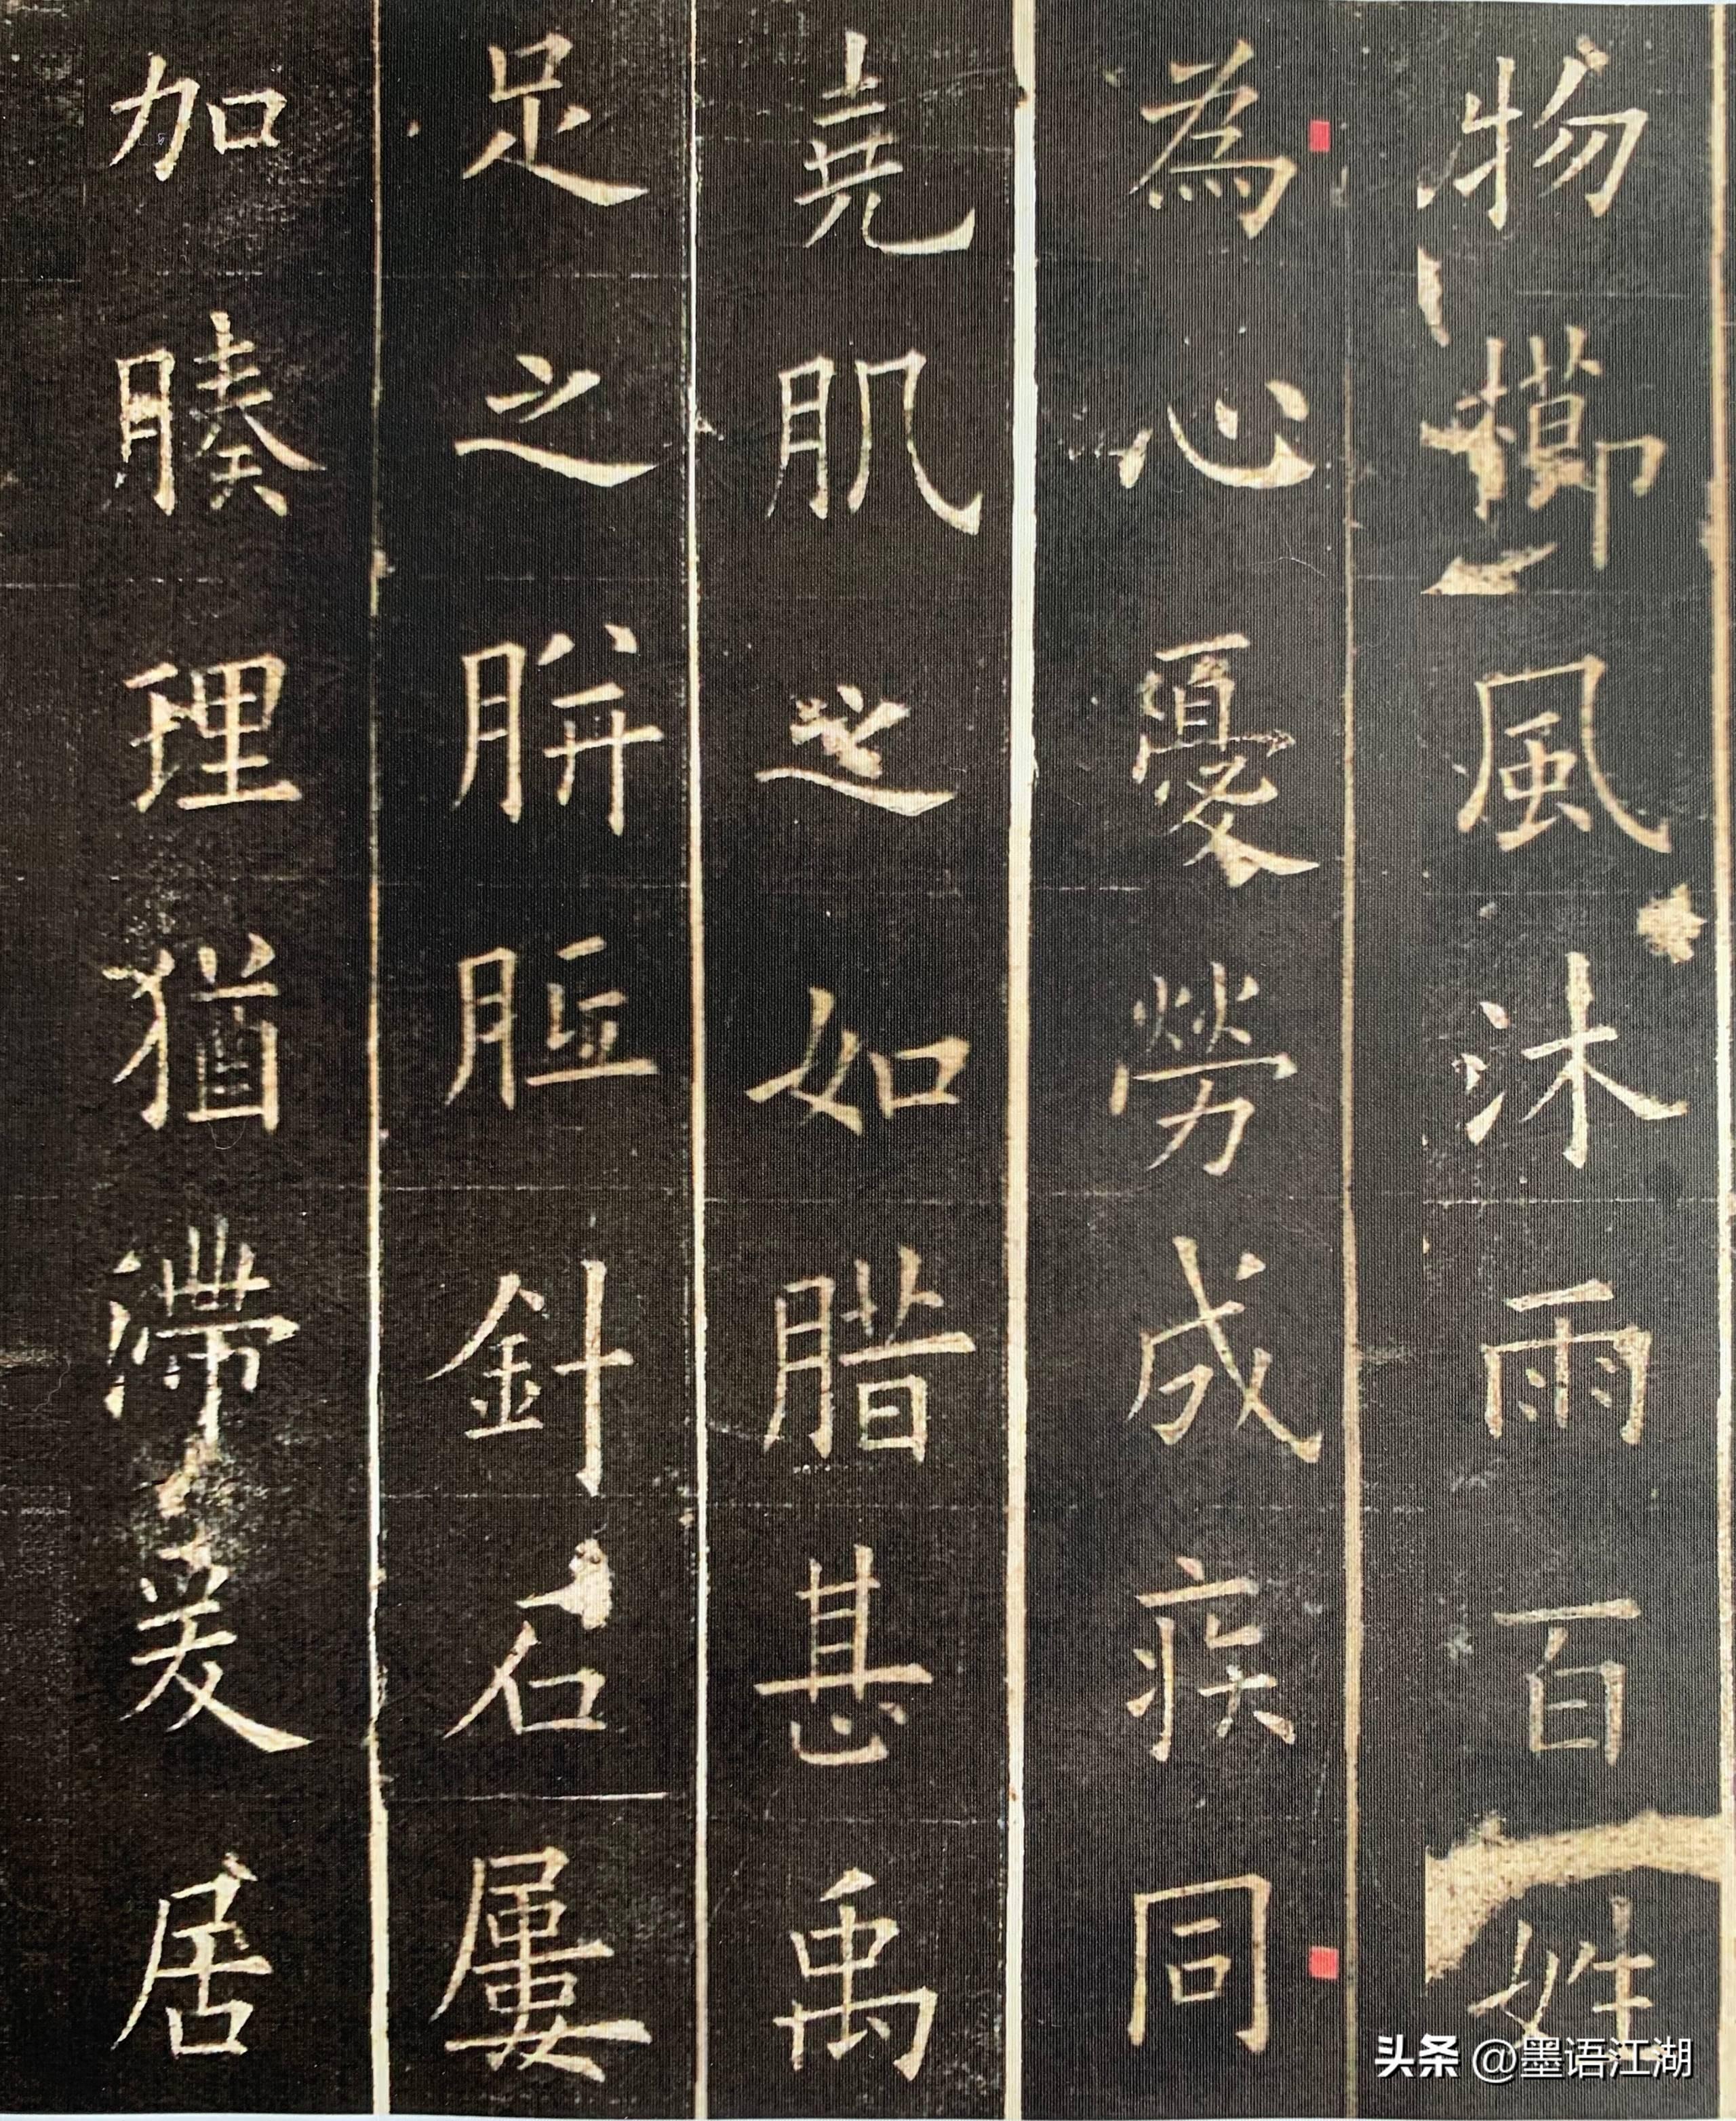 物櫛風沐雨百姓
為心憂勞成疾同
堯肌之如腊甚禹
足之胼胝針石屢
加腠理猶滯爰居
头条 @墨语江湖